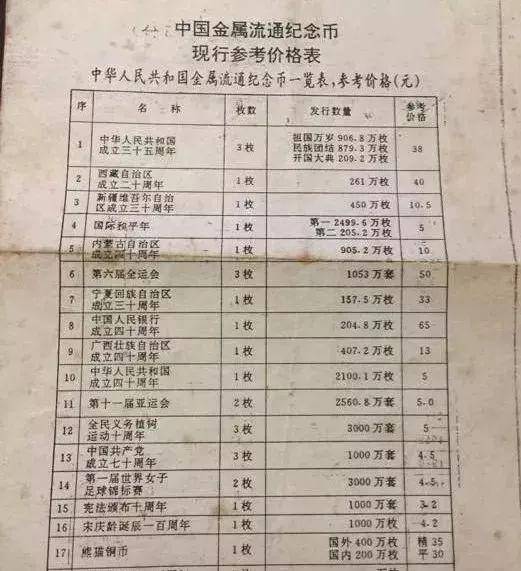 中国金属流通纪念币
现行参考价格表
中华人民共和国金属流通纪念币一览表，参考价格(元)
序 名称 枚数 发行数量 参考价格
1 中华人民共和国成立三十五周年 3枚 祖国万岁 906.8 万枚 民族团结 879.3 万枚 开国大典 209.2 万枚 38
2 西藏自治区成立二十周年 1枚 261 万枚 40
3 新疆维吾尔自治区成立三十周年 1枚 450 万枚 10.5
4 国际和平年 1枚 第一 2499.6 万枚 第二 205.2 万枚 5
5 内蒙古自治区成立四十周年 1枚 905.2 万枚 10
6 第六届全运会 3枚 1053 万套 50
7 宁夏回族自治区成立三十周年 1枚 157.5 万枚 33
8 中国人民银行成立四十周年 1枚 204.8 万枚 65
9 广西壮族自治区成立四十周年 1枚 407.2 万枚 13
10 中华人民共和国成立四十周年 1枚 2100.1 万枚 5
11 第十一届亚运会 2枚 2560.8 万套 5.0
12 全民义务植树运动十周年 3枚 3000 万套 5
13 中国共产党成立七十周年 3枚 1000 万套 4.5
14 第一届世界女子足球锦标赛 2枚 3000 万套 4.5
15 宪法颁布十周年 1枚 1000 万套 3.2
16 宋庆龄诞辰一百周年 1枚 1000 万枚 4.2
17 熊猫铜币 1枚 国外 400 万枚 国内 200 万枚 精 35 平 30